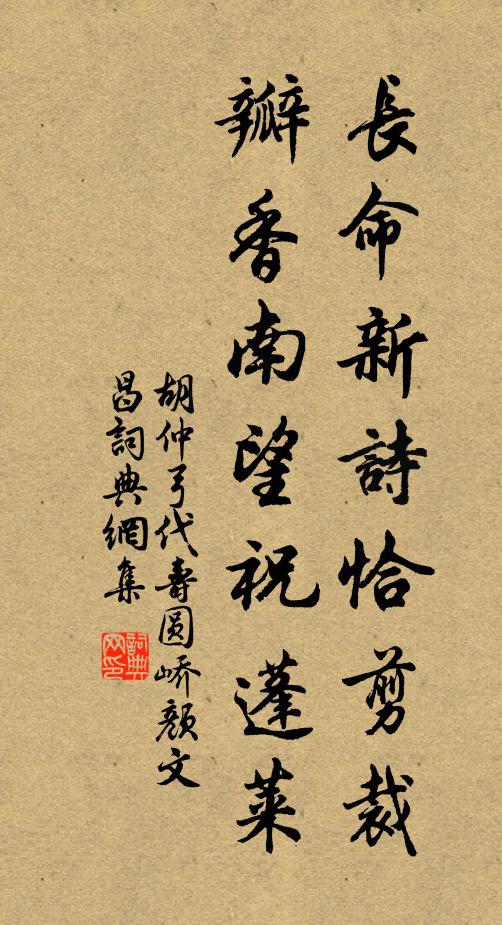 長命新詩恰剪裁
瓣香南望祝蓬萊
胡仲弓代壽圆嶠顏文
昌詞典網集
詞典
网印